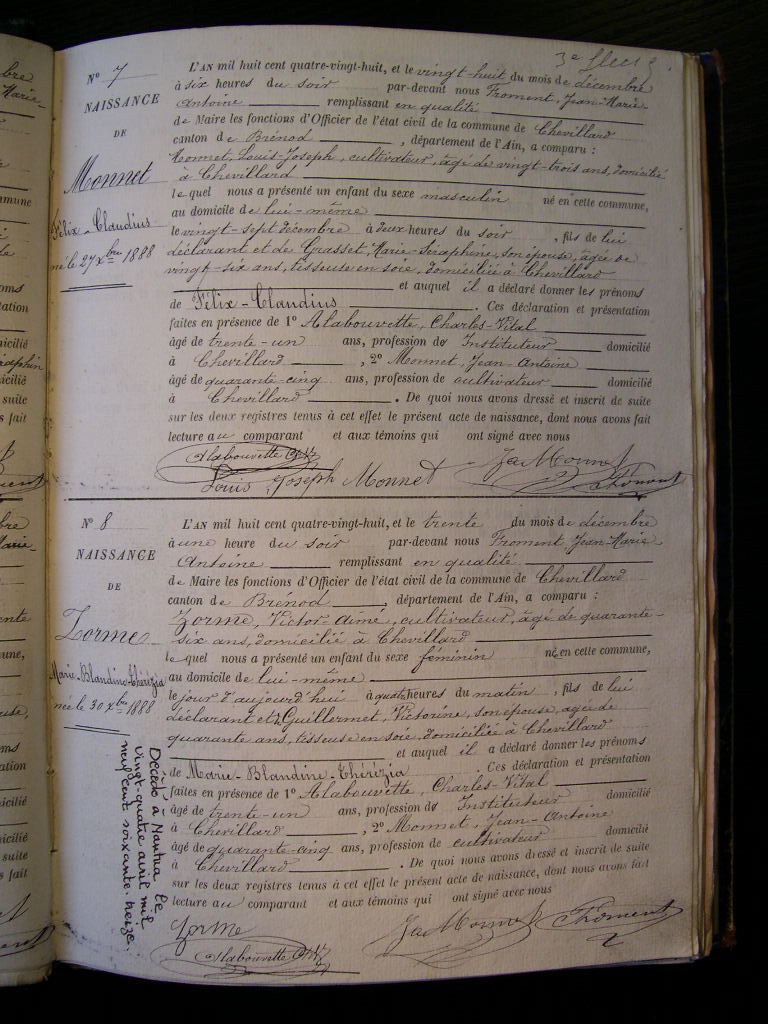 3e
N° 7
NAISSANCE
DE
Monnet
Félix-Claudius
né le 27 xbre 1888
L'AN mil huit cent quatre-vingt-huit, et le vingt-huit du mois de décembre
à six heures du soir par-devant nous Froment, Jean-Marie-
Antoine remplissant en qualité
de Maire les fonctions d'Officier de l'état civil de la commune de Chevillard
canton de Brénod, département de l'Ain, a comparu :
Monnet, Louis-Joseph, cultivateur, âgé de vingt-trois ans, domicilié
à Chevillard
lequel nous a présenté un enfant du sexe masculin né en cette commune,
au domicile de lui-même
le vingt-sept décembre à deux heures du soir, fils de lui
déclarant et de Grasset, Marie-Séraphine, son épouse, âgée de
vingt-six ans, tisseuse en soie, domiciliée à Chevillard
et auquel il a déclaré donner les prénoms
de Félix-Claudius. Ces déclaration et présentation
faites en présence de 1° Alabouvette, Charles-Vital
âgé de trente-un ans, profession de Instituteur domicilié
à Chevillard, 2° Monnet, Jean-Antoine
âgé de quarante-cinq ans, profession de cultivateur domicilié
à Chevillard. De quoi nous avons dressé et inscrit de suite
sur les deux registres tenus à cet effet le présent acte de naissance, dont nous avons fait
lecture au comparant et aux témoins qui ont signé avec nous
Alabouvette Ch. V.
Louis Joseph Monnet
Ja Monnet
Froment
N° 8
NAISSANCE
DE
Zorme
Marie-Blandine-Thérézia
née le 30 xbre 1888
Décédé à Nantua le
vingt-quatre avril mil
neuf cent soixante-treize.
L'AN mil huit cent quatre-vingt-huit, et le trente du mois de décembre
à une heure du soir par-devant nous Froment, Jean-Marie-
Antoine remplissant en qualité
de Maire les fonctions d'Officier de l'état civil de la commune de Chevillard
canton de Brénod, département de l'Ain, a comparu :
Zorme, Victor-Aimé, cultivateur, âgé de quarante-
six ans, domicilié à Chevillard
lequel nous a présenté un enfant du sexe féminin né en cette commune,
au domicile de lui-même
le jour d'aujourd'hui à quatre heures du matin, fils de lui
déclarant et de Guillermet, Victorine, son épouse, âgée de
quarante ans, tisseuse en soie, domiciliée à Chevillard
et auquel il a déclaré donner les prénoms
de Marie-Blandine-Thérézia. Ces déclaration et présentation
faites en présence de 1° Alabouvette, Charles-Vital
âgé de trente-un ans, profession de Instituteur domicilié
à Chevillard, 2° Monnet, Jean-Antoine
âgé de quarante-cinq ans, profession de cultivateur domicilié
à Chevillard. De quoi nous avons dressé et inscrit de suite
sur les deux registres tenus à cet effet le présent acte de naissance, dont nous avons fait
lecture au comparant et aux témoins qui ont signé avec nous
Zorme
Ja Monnet
Froment
Alabouvette Ch. V.